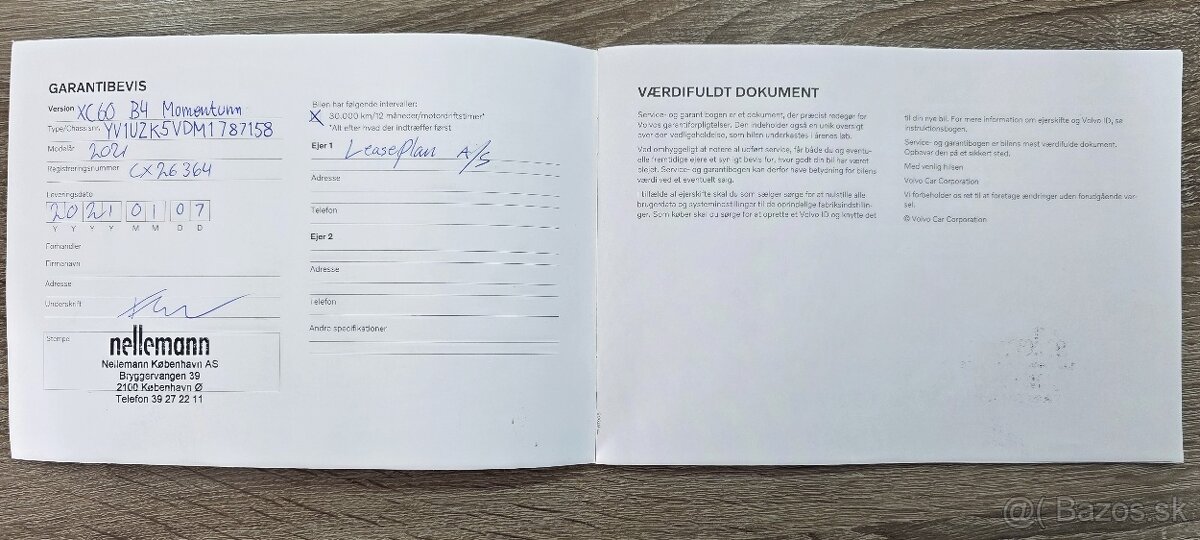 GARANTIBEVIS
Version XC60 B4 Momentum
Type/Chassisnr. YV1UZK5VDM1787158
Modelår 2021
Registreringsnummer CX26364
Leveringsdato
2021 01 07
Y Y Y Y M M D D
Forhandler
Firmanavn
Adresse
Underskrift
Stempel
nellemann
Nellemann København AS
Bryggervangen 39
2100 København Ø
Telefon 39 27 22 11
Bilen har følgende intervaller:
X 30.000 km/12 måneder/motordriftstimer*
*Alt efter hvad der indtræffer først
Ejer 1 LeasePlan A/S
Adresse
Telefon
Ejer 2
Adresse
Telefon
Andre specifikationer
VÆRDIFULDT DOKUMENT
Service- og garantibogen er et dokument, der præcist redegør for
Volvos garantiforpligtelser. Den indeholder også en unik oversigt
over den vedligeholdelse, som bilen underkastes i årenes løb.
Ved omhyggeligt at notere al udført service, får både du og eventu-
elle fremtidige ejere et synligt bevis for, hvor godt din bil har været
plejet. Service- og garantibogen kan derfor have betydning for bilens
værdi ved et eventuelt salg.
I tilfælde af ejerskifte skal du som sælger sørge for at nulstille alle
brugerdata og systemindstillinger til de oprindelige fabriksindstillin-
ger. Som køber skal du sørge for at oprette et Volvo ID og knytte det
til din nye bil. For mere information om ejerskifte og Volvo ID, se
instruktionsbogen.
Service- og garantibogen er bilens mest værdifulde dokument.
Opbevar den på et sikkert sted.
Med venlig hilsen
Volvo Car Corporation
Vi forbeholder os ret til at foretage ændringer uden forudgående var-
sel.
© Volvo Car Corporation
@( Bazos.sk